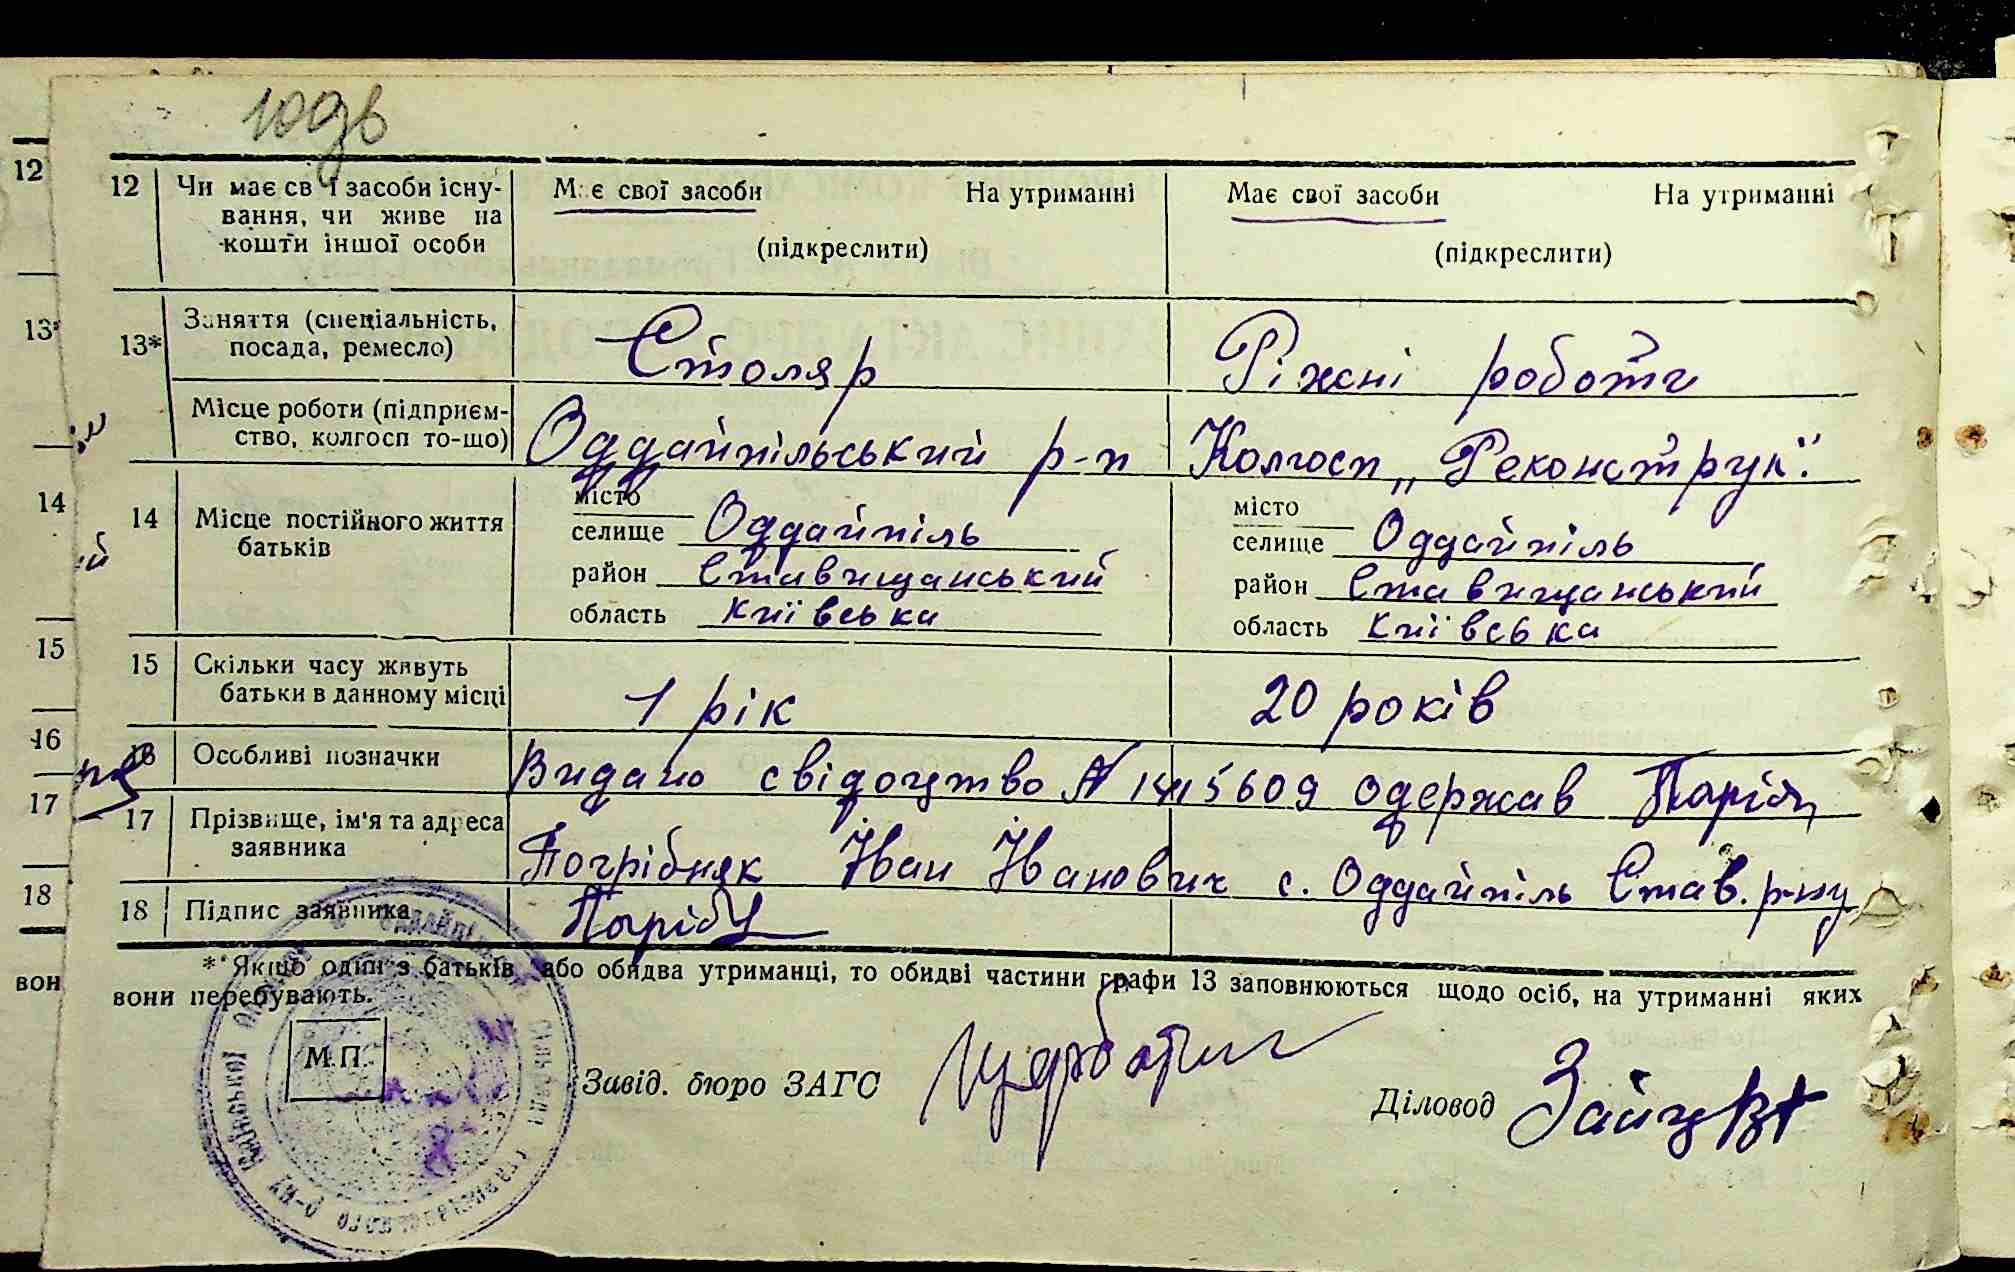 12 Чи має св ї засоби існу- М є свої засоби На утриманні Має свої засоби На утриманні
вання, чи живе на
кошти іншої особи (підкреслити) (підкреслити)
13* Заняття (спеціальність,
посада, ремесло) Столяр Ріжні роботи
Місце роботи (підприєм-
ство, колгосп то-що) Оддайпільський р-н Колгосп „Реконструк".
14 Місце постійного життя
батьків
місто місто
селище Оддайпіль селище Оддайпіль
район Ставищанський район Ставищанський
область Київська область Київська
15 Скільки часу живуть
батьки в данному місці 1 рік 20 років
16 Особливі позначки Видано свідоцтво № одержав
17 Прізвище, ім'я та адреса
заявника Погрібняк Іван Іванович с. Оддайпіль Став. р-ну
18 Підпис заявника
* Якщо один з батьків або обидва утриманці, то обидві частини графи 13 заповнюються щодо осіб, на утриманні яких
вони перебувають.
М.П.
Завід. бюро ЗАГС
Діловод
12
13*
14
15
16
17
18
вон